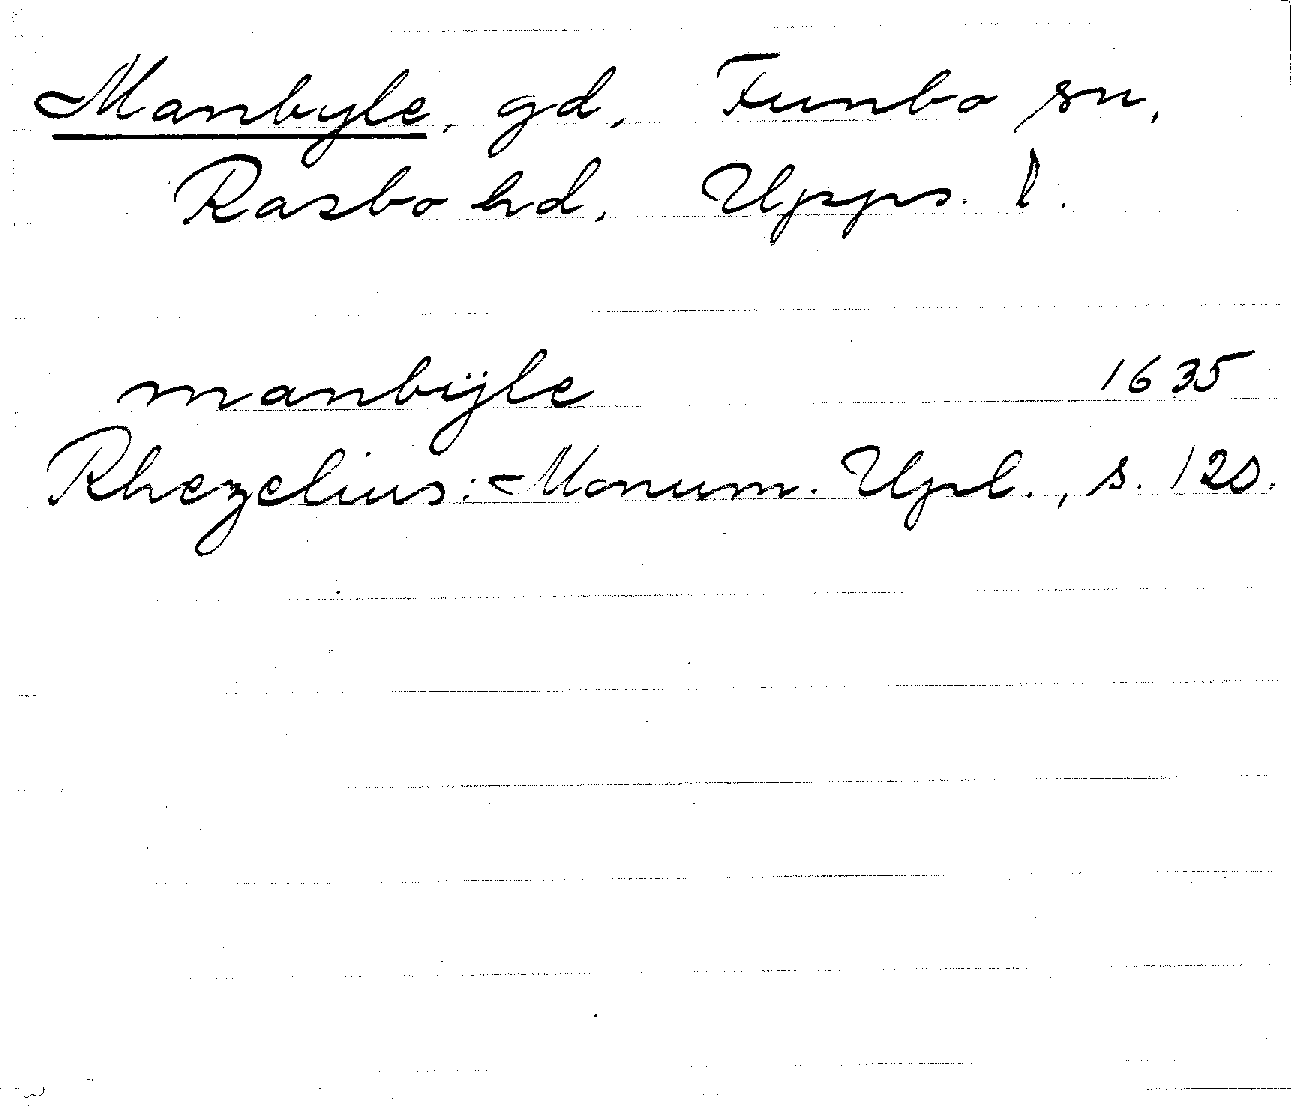 Manbyle, gd, Funbo sn,
Rasbo hd, Upps. l.
manbÿle 1635
Rhezelius: Monum. Upl., s. 120.